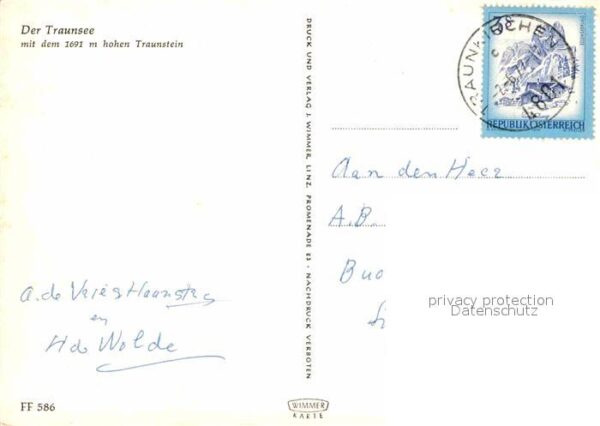 Der Traunsee
mit dem 1691 m hohen Traunstein
DRUCK UND VERLAG J. WIMMER, LINZ, PROMENADE 23 · NACHDRUCK VERBOTEN
TRAUNKIRCHEN
4801
REPUBLIK ÖSTERREICH
Aan den Heer
A.B.
Bu
privacy protection
Datenschutz
A. de Vries
en
H de Wolde
FF 586
WIMMER
KARTE